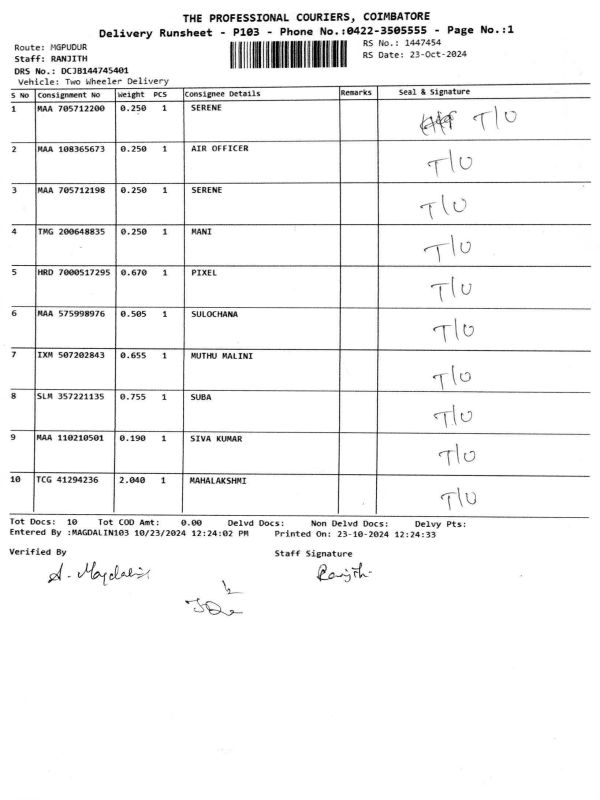 THE PROFESSIONAL COURIERS, COIMBATORE
Delivery Runsheet - P103 - Phone No.:0422-3505555 - Page No.:1
Route: MGPUDUR RS No.: 1447454
Staff: RANJITH RS Date: 23-Oct-2024
DRS No.: DCJB144745401
Vehicle: Two Wheeler Delivery
S No Consignment No Weight PCS Consignee Details Remarks Seal & Signature
1 MAA 705712200 0.250 1 SERENE T/U
2 MAA 108365673 0.250 1 AIR OFFICER T/U
3 MAA 705712198 0.250 1 SERENE T/U
4 TMG 200648835 0.250 1 MANI T/U
5 HRD 7000517295 0.670 1 PIXEL T/U
6 MAA 575998976 0.505 1 SULOCHANA T/U
7 IXM 507202843 0.655 1 MUTHU MALINI T/U
8 SLM 357221135 0.755 1 SUBA T/U
9 MAA 110210501 0.190 1 SIVA KUMAR T/U
10 TCG 41294236 2.040 1 MAHALAKSHMI T/U
Tot Docs: 10 Tot COD Amt: 0.00 Delvd Docs: Non Delvd Docs: Delvy Pts:
Entered By :MAGDALIN103 10/23/2024 12:24:02 PM Printed On: 23-10-2024 12:24:33
Verified By Staff Signature
A. Magdalin Ranjith